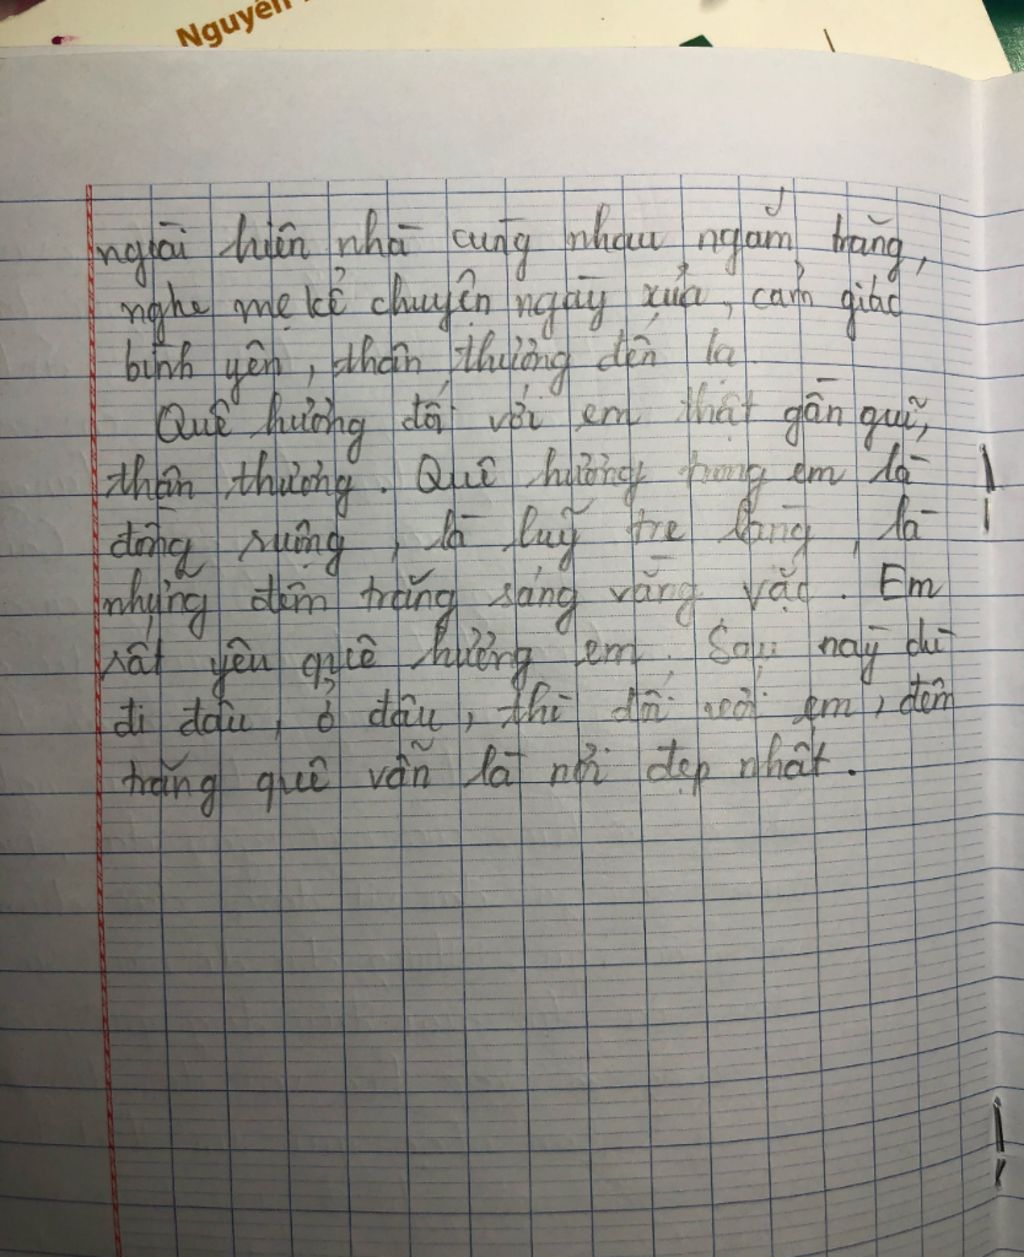 Nguyễn
ngoài hiên nhà cùng nhau ngắm trăng,
nghe mẹ kể chuyện ngày xưa, cảm giác
bình yên, thân thương đến lạ.
Quê hương đối với em thật gần guĩ,
thân thương. Quê hương trong em là
đồng ruộng, là luỹ tre làng, là
những đêm trăng sáng vằng vặc. Em
rất yêu quê hương em. Sau này dù
đi đâu, ở đâu, thì đối với em, đêm
trăng quê vẫn là nơi đẹp nhất.